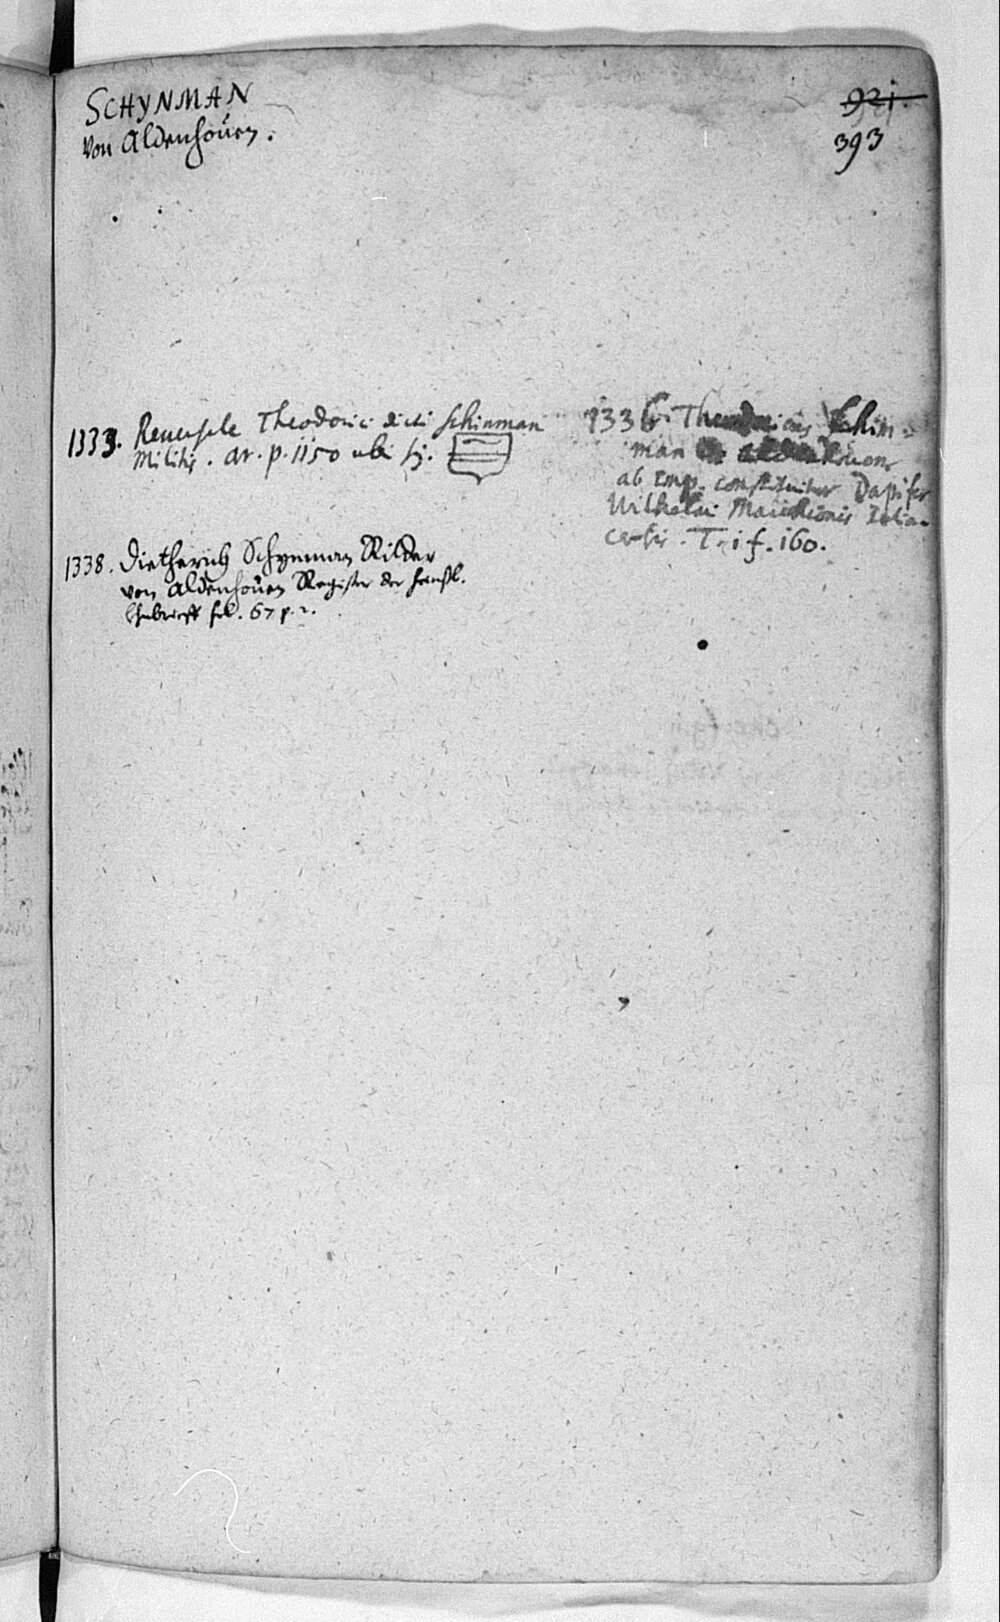 SCHYNMAN
von Aldenhouen.
921.
393
1333. Reuersale Theodorici dicti Schinman
Militis. ar. p. 1150 ubi sig.
1338. Dietherich Schynman Ritter
von Aldenhouen Register der heinsb.
Lehnbrieff fol. 67 p. 2.
1336. Theodoricus Schin=
man de Aldenhouen
ab Imp. constituitur Dapifer
Wilhelmi Marchionis Iulia-
censis. T. i f. 160.